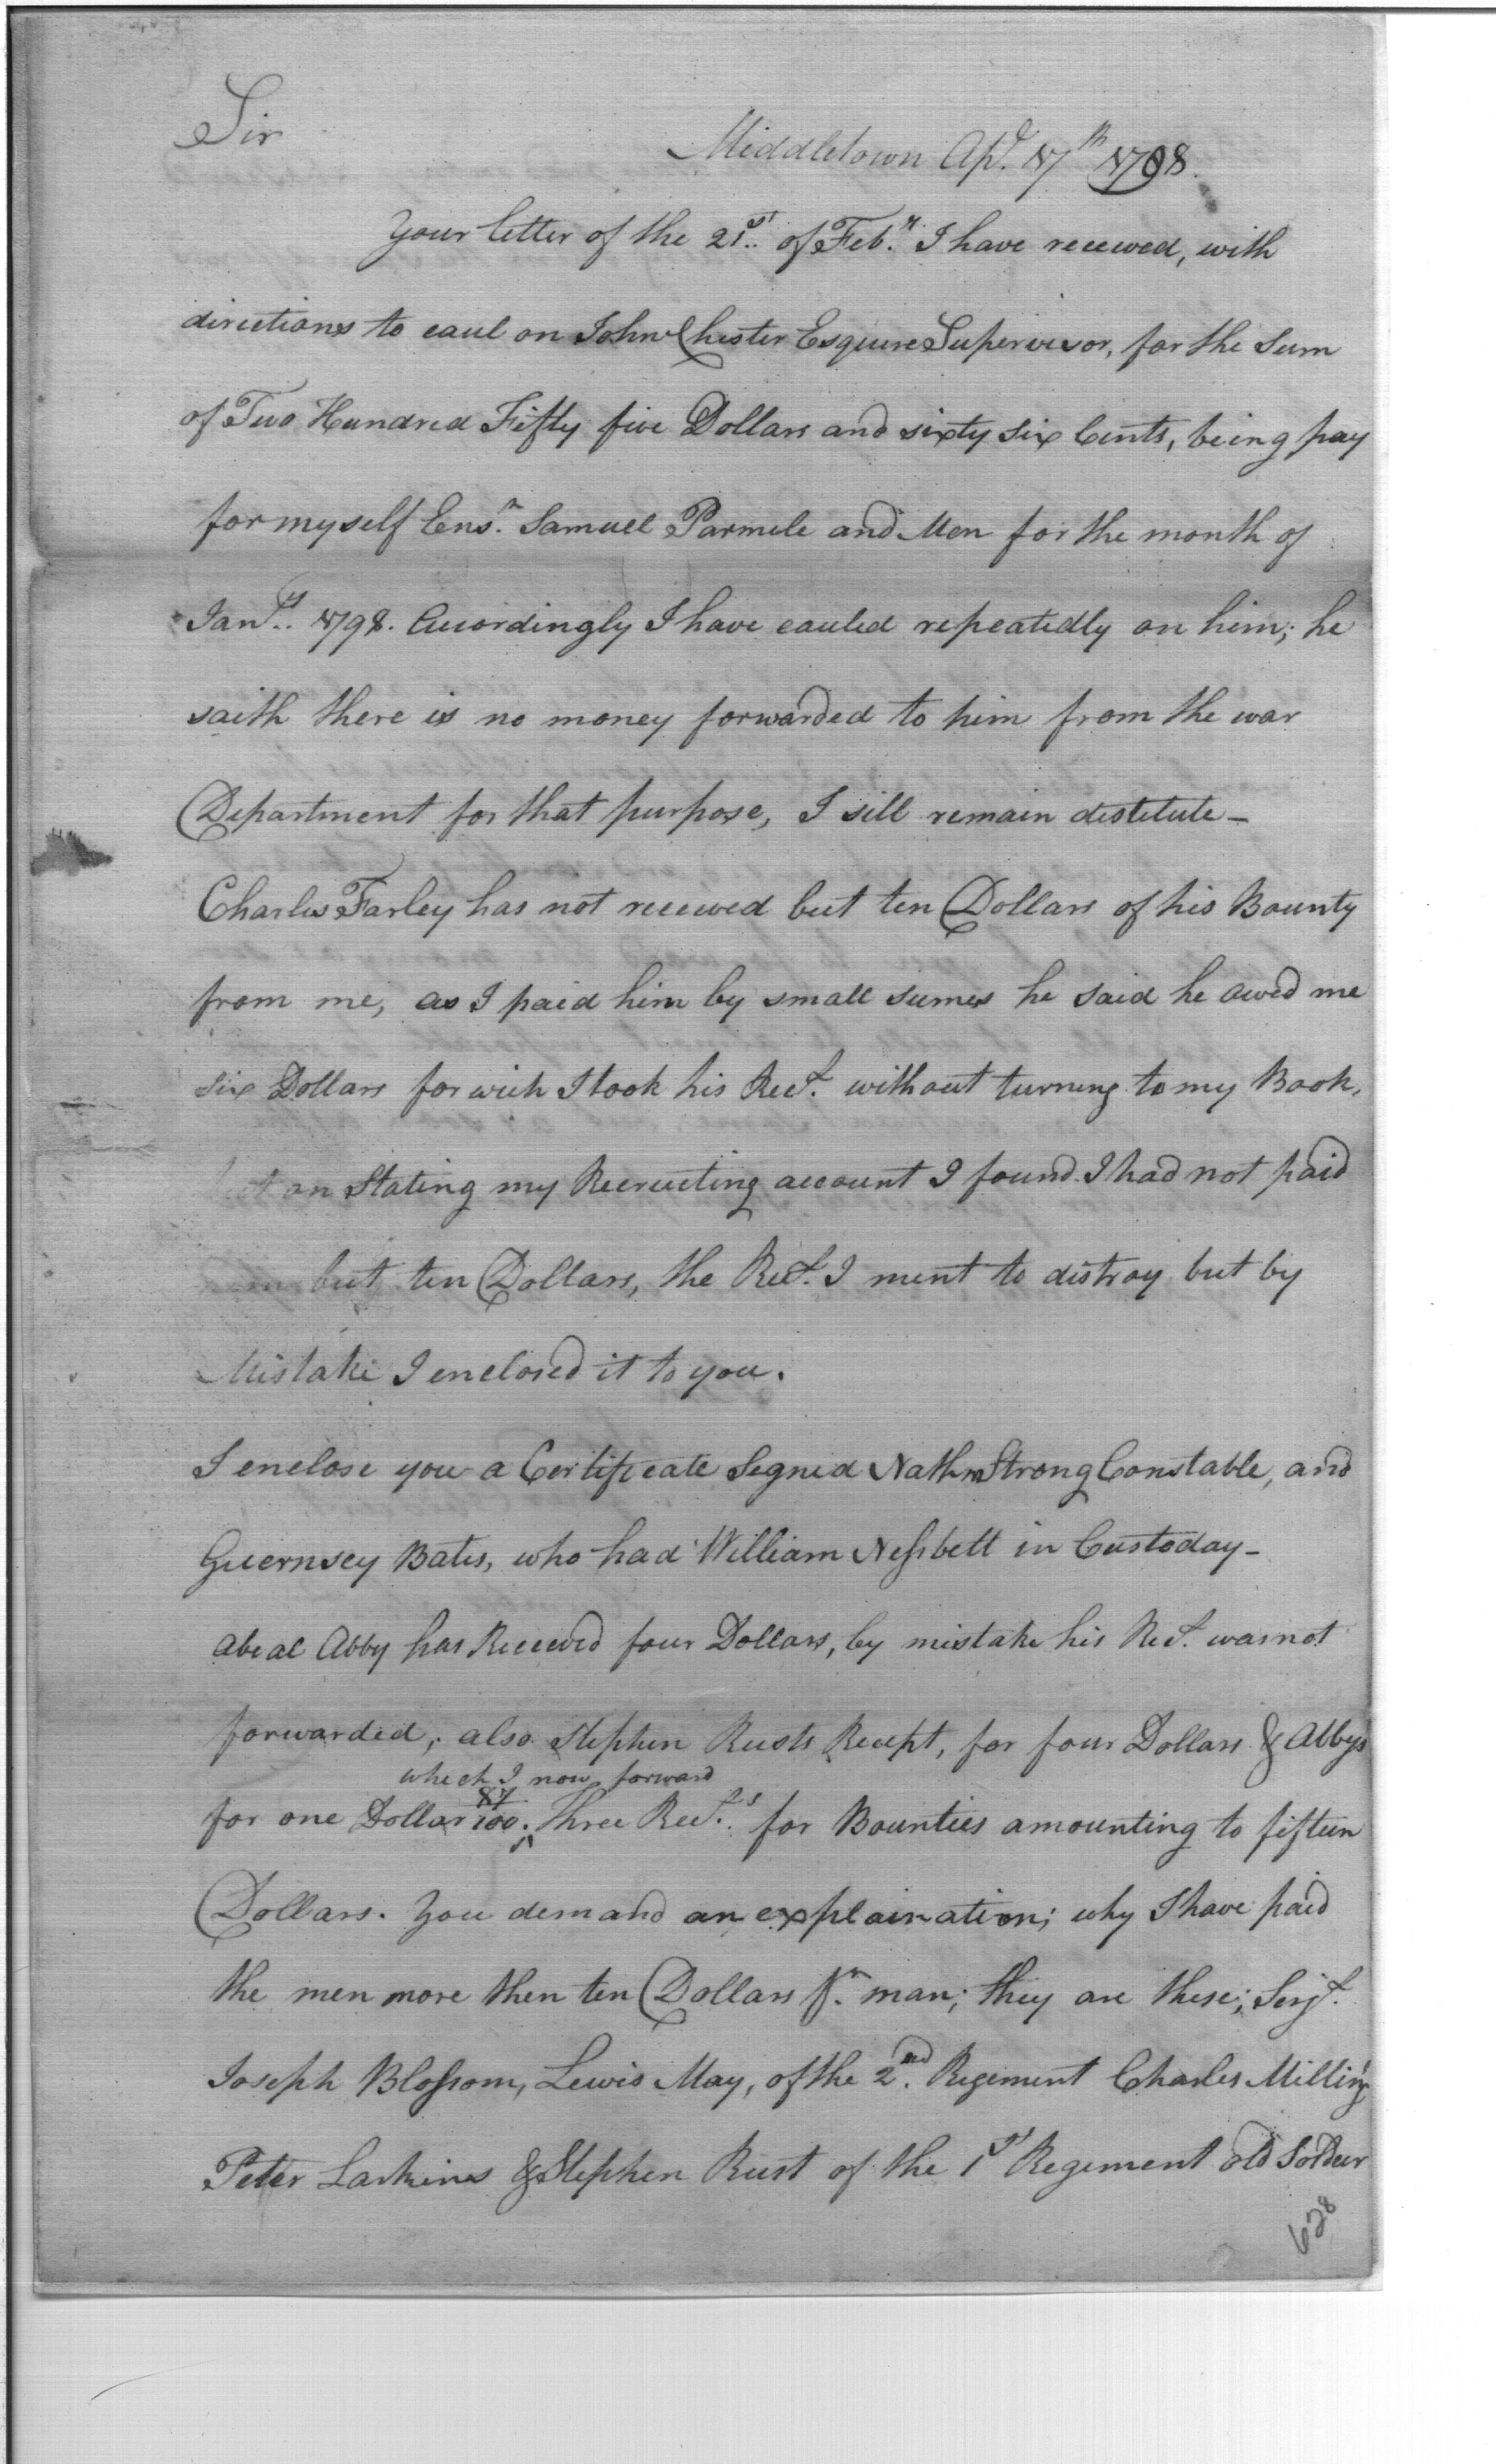 Sir
Middletown Apl. 17th 1798.
Your letter of the 21st. of Feby. I have received, with
directions to caul on John Chester Esquire Supervisor, for the Sum
of Two Hundred Fifty five Dollars and sixty six Cents, being pay
for myself Ensn. Samuel Parmele and Men for the month of
Jany. 1798. Accordingly I have cauled repeatedly on him; he
saith there is no money forwarded to him from the war
Department for that purpose, I sill remain destitute-
Charles Farley has not received but ten Dollars of his Bounty
from me, as I paid him by small sumes he said he owed me
six Dollars for wich I took his Rect. without turning to my Book,
on Stating my Recruiting account I found I had not paid
but ten Dollars, the Rect. I ment to distroy but by
Mistake I enclosed it to you.
I enclose you a Certificate Signed Nathn Strong Constable, and
Guernsey Bates, who had William Nessbett in Custoday-
Abeal Abby has Received four Dollars, by mistake his Rect. was not
forwarded; also Stephen Rusts Recept, for four Dollars & Abbys
which I now forward
for one Dollar 87/100. Three Rects. for Bounties amounting to fifteen
Dollars. You demand an explaination; why I have paid
the men more then ten Dollars pr. man; they are these; Serjt.
Joseph Blossom, Lewis May, of the 2nd. Regiment Charles Milling
Peter Larkins & Stephen Rust of the 1st Regement old Soldeer
628